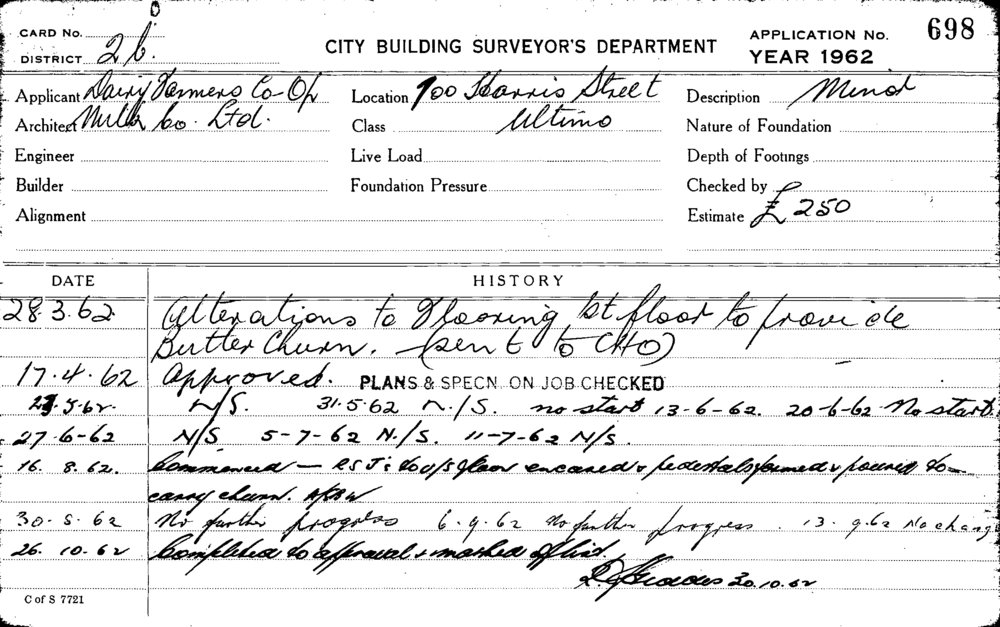 CARD No.
DISTRICT 2b.
CITY BUILDING SURVEYOR'S DEPARTMENT
APPLICATION No. 698
YEAR 1962
Applicant Dairy Farmers Co-Op
Architect Milk Co. Ltd.
Engineer
Builder
Alignment
Location 700 Harris Street
Class Ultimo
Live Load
Foundation Pressure
Description Minor
Nature of Foundation
Depth of Footings
Checked by
Estimate £250
DATE HISTORY
28.3.62 Alterations to Flooring 1st floor to provide
Butter Churn. (sent to CHO)
17.4.62 Approved. PLANS & SPECN. ON JOB CHECKED
.5.62. N/S. 31.5.62 N/S. no start 13-6-62. 20-6-62 No start.
27-6-62 N/S 5-7-62 N/S. 11-7-62 N/S.
16. 8.62. Commenced — RSJ's to u/s floor encased & pedestals formed & poured to
carry churn.
30.8.62 No further progress 6.9.62 No further progress. 13.9.62 No change
26.10.62 Completed to approval & marked off list.
30.10.62
C of S 7721